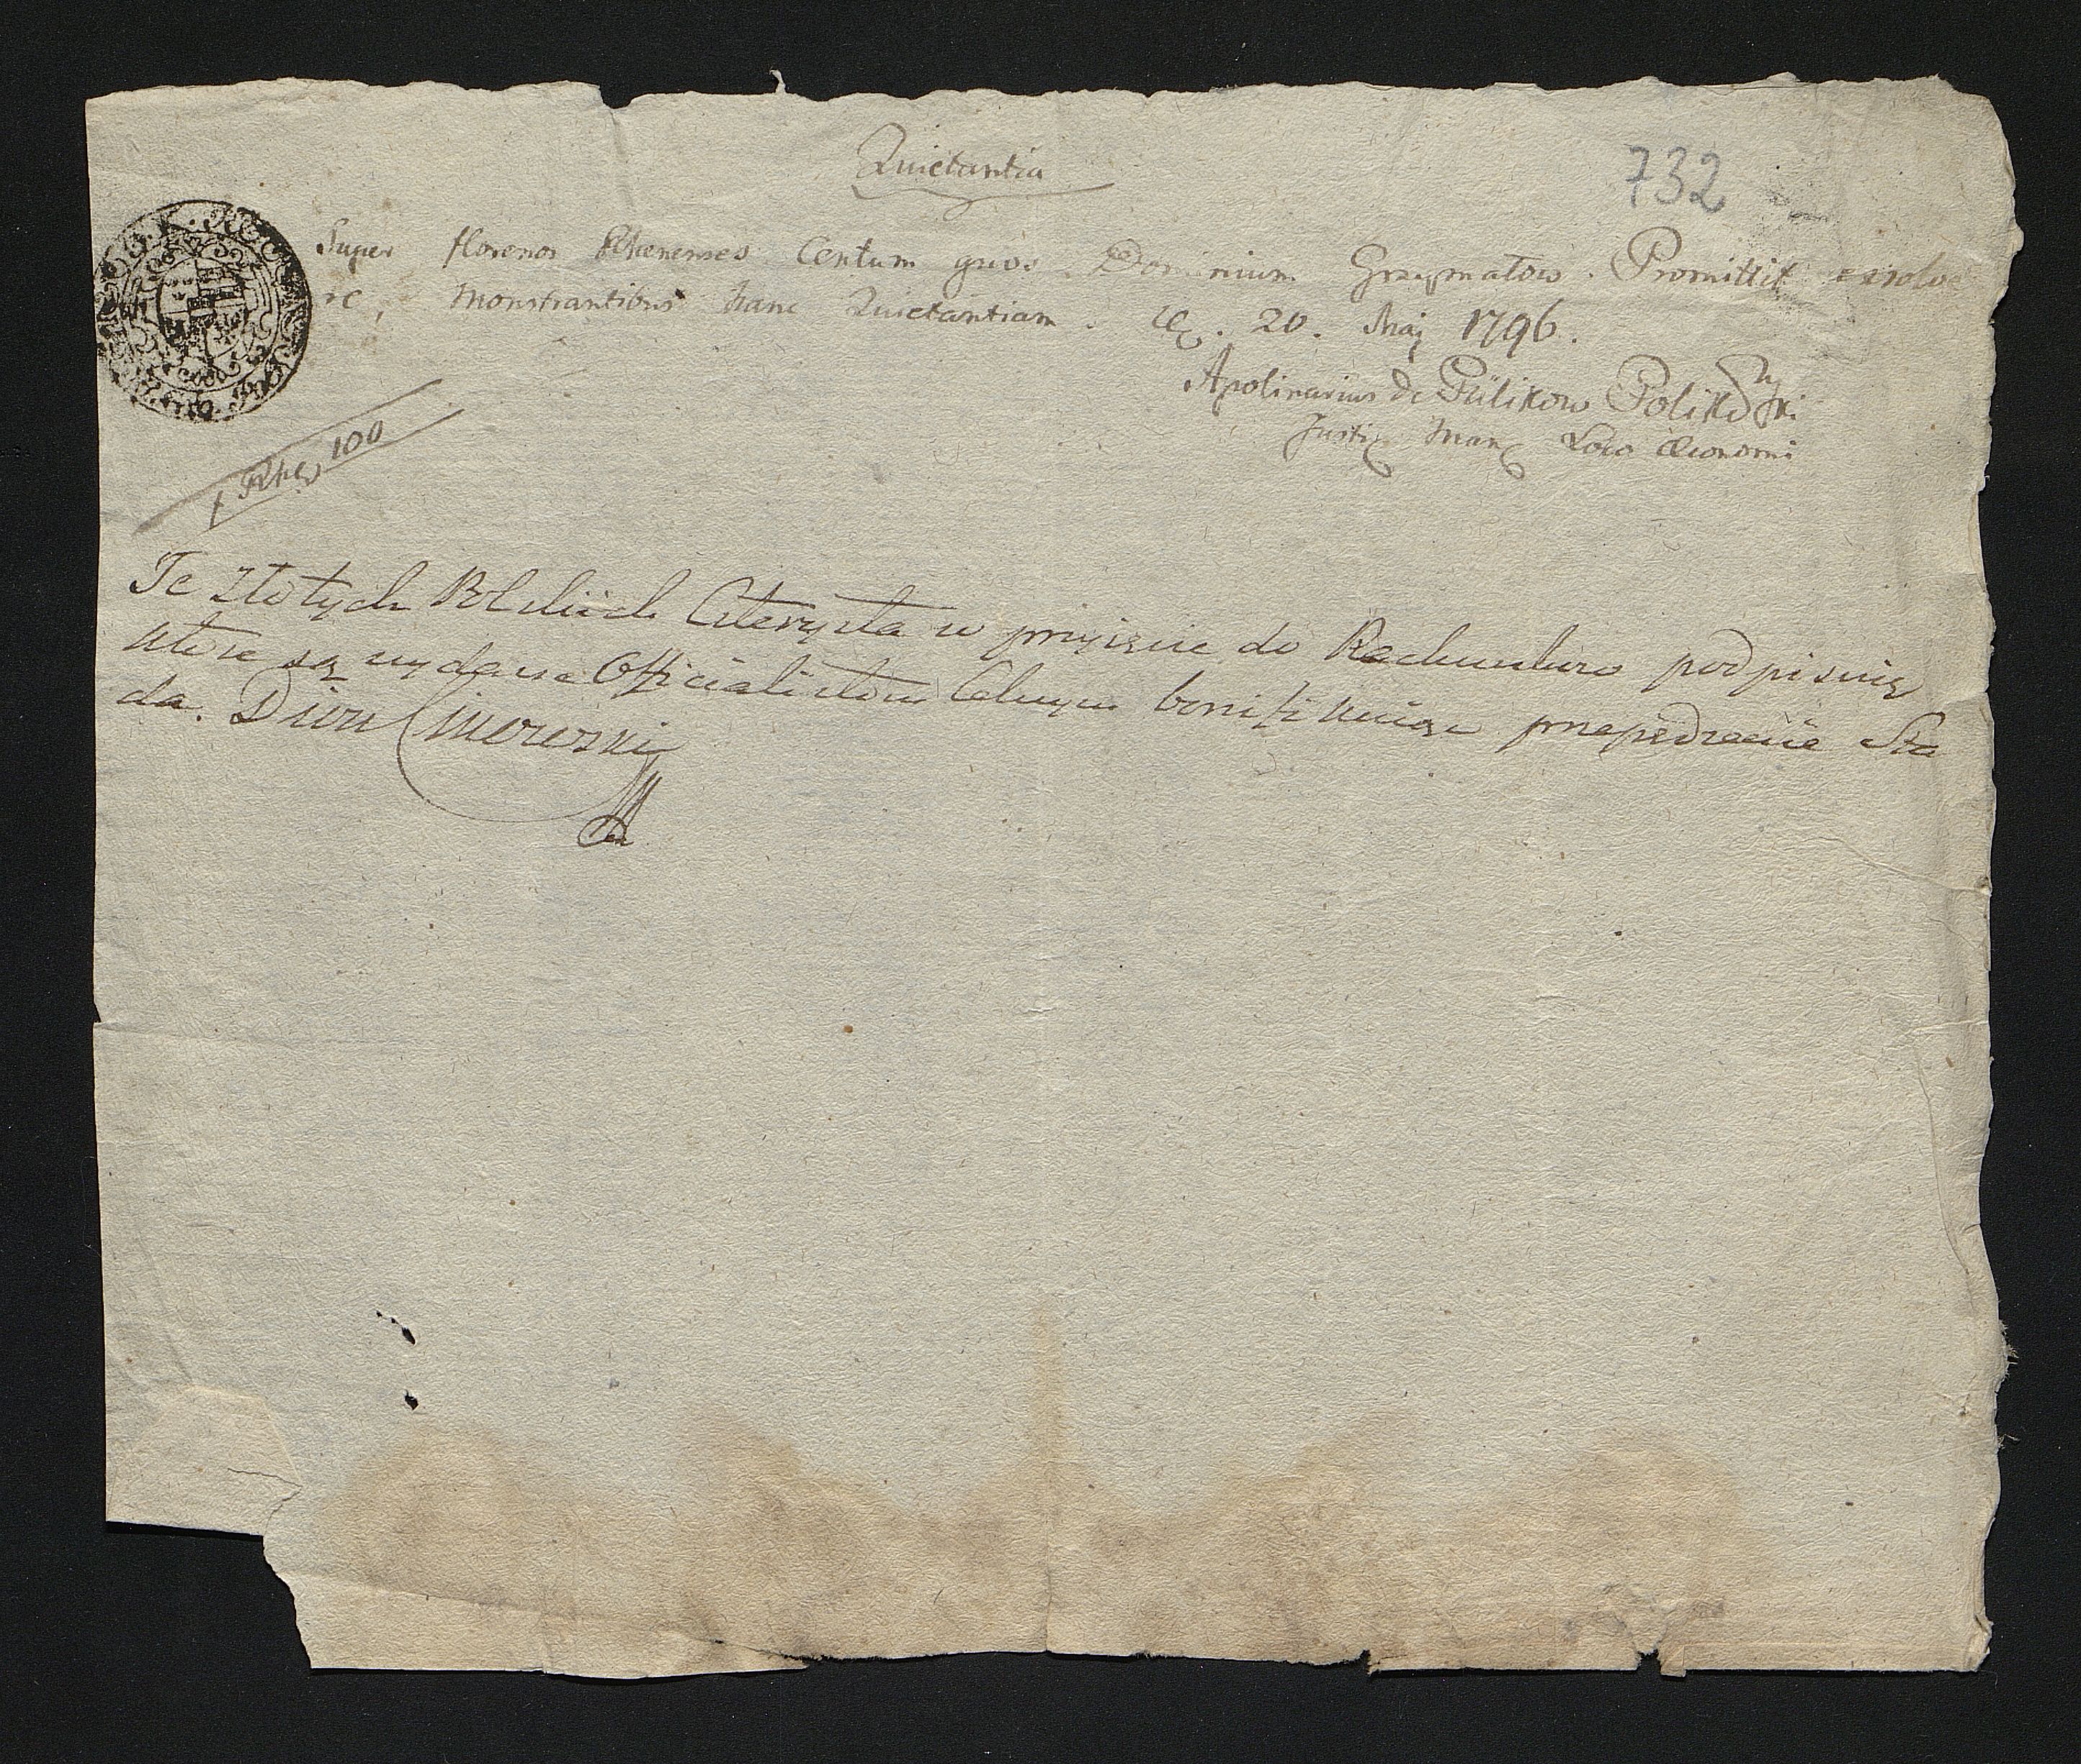 Quietantia
732
Super florenos Rhenenses Centum quos Dominium Grzymałow. Promittit exsolve
re, Monstrantibus hanc Quietantiam. 20. Maij 1796.
Apolinarius de Pülikow Poliko
Justi Man Loco Œconomi
f Rhe 100
Te złotych Polskiich Czterysta w przyisciie do Rachunkuw podpisuię
które są wydane Officialistom Celnym bonifikuiąc przepędzenie Sta
da.